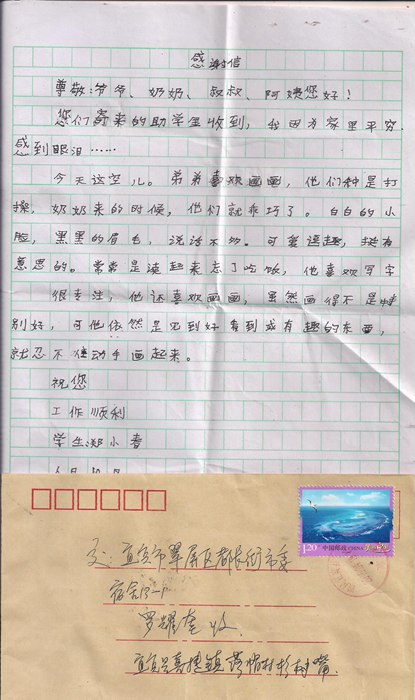 感谢信
尊敬:爷爷、奶奶、叔叔、阿姨您好!
您们寄来的助学金收到,我因为家里平穷.
感到眼泪……
今天这空儿。弟弟喜欢画画,他们种是打
操,奶奶来的时候,他们就乖巧了。白白的小
脸,黑黑的眉毛,说话不多。可童逗趣,挺有
意思的。常常是读起来忘了吃饭,他喜欢写字
很专注,他还喜欢画画,虽然画得不是特
别好,可他依然是见到好看到或有趣的东西,
就忍不住动手画起来。
祝您
工作顺利
学生:郑小春
中国邮政 CHINA
1.20
交:宜宾市翠屏区都长街市委
宿舍13-1
罗耀奎 收
宜宾县喜捷镇